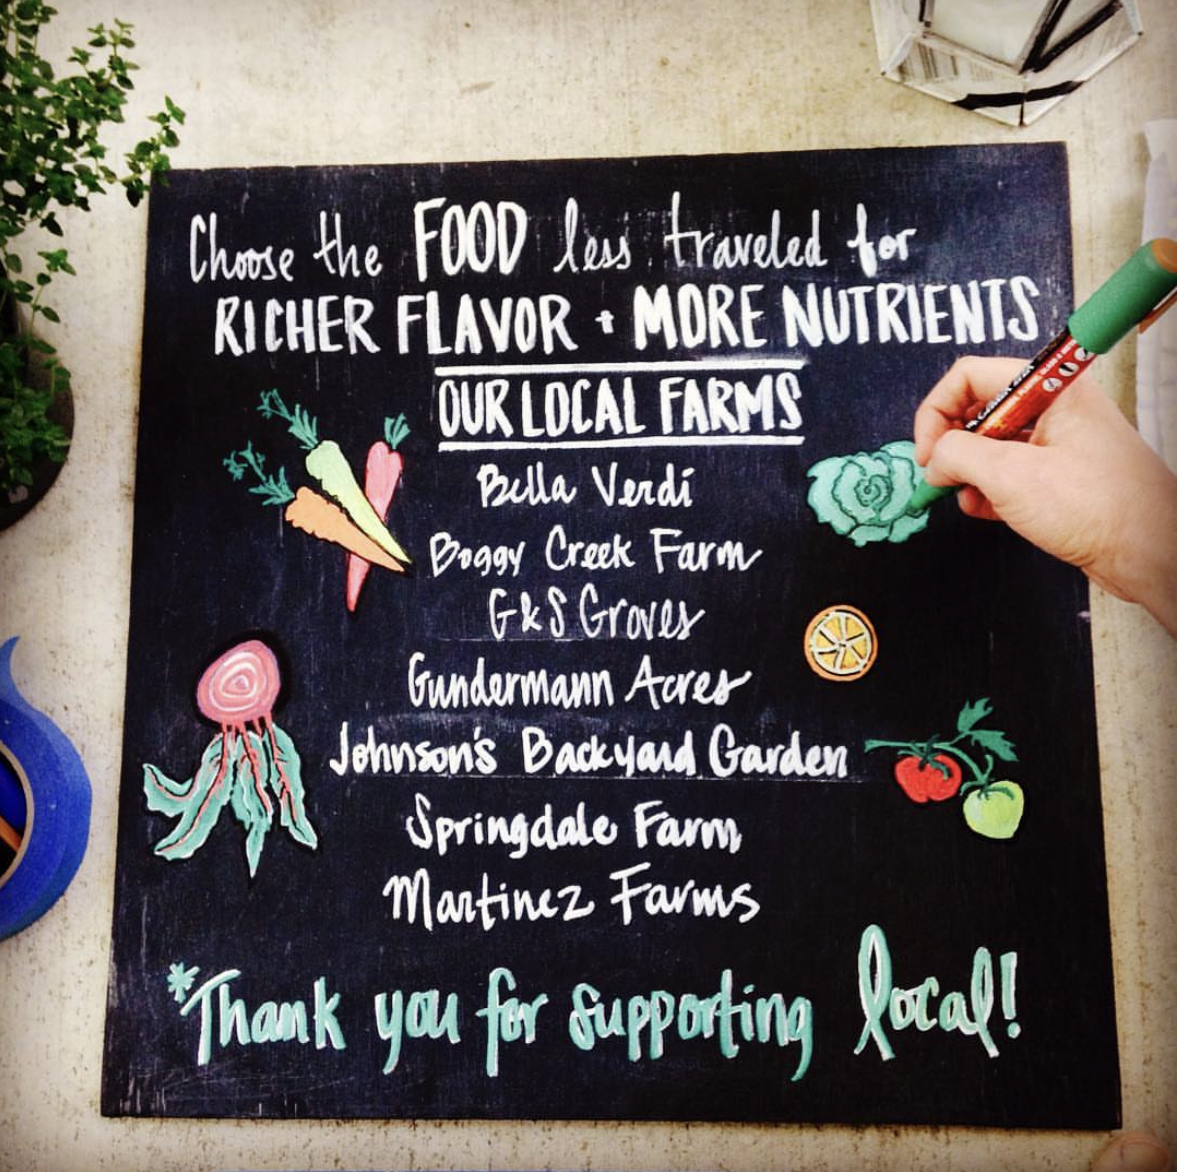 Choose the FOOD less traveled for
RICHER FLAVOR + MORE NUTRIENTS
OUR LOCAL FARMS
Bella Verdi
Boggy Creek Farm
G&S Groves
Gundermann Acres
Johnson's Backyard Garden
Springdale Farm
Martinez Farms
*Thank you for supporting local!